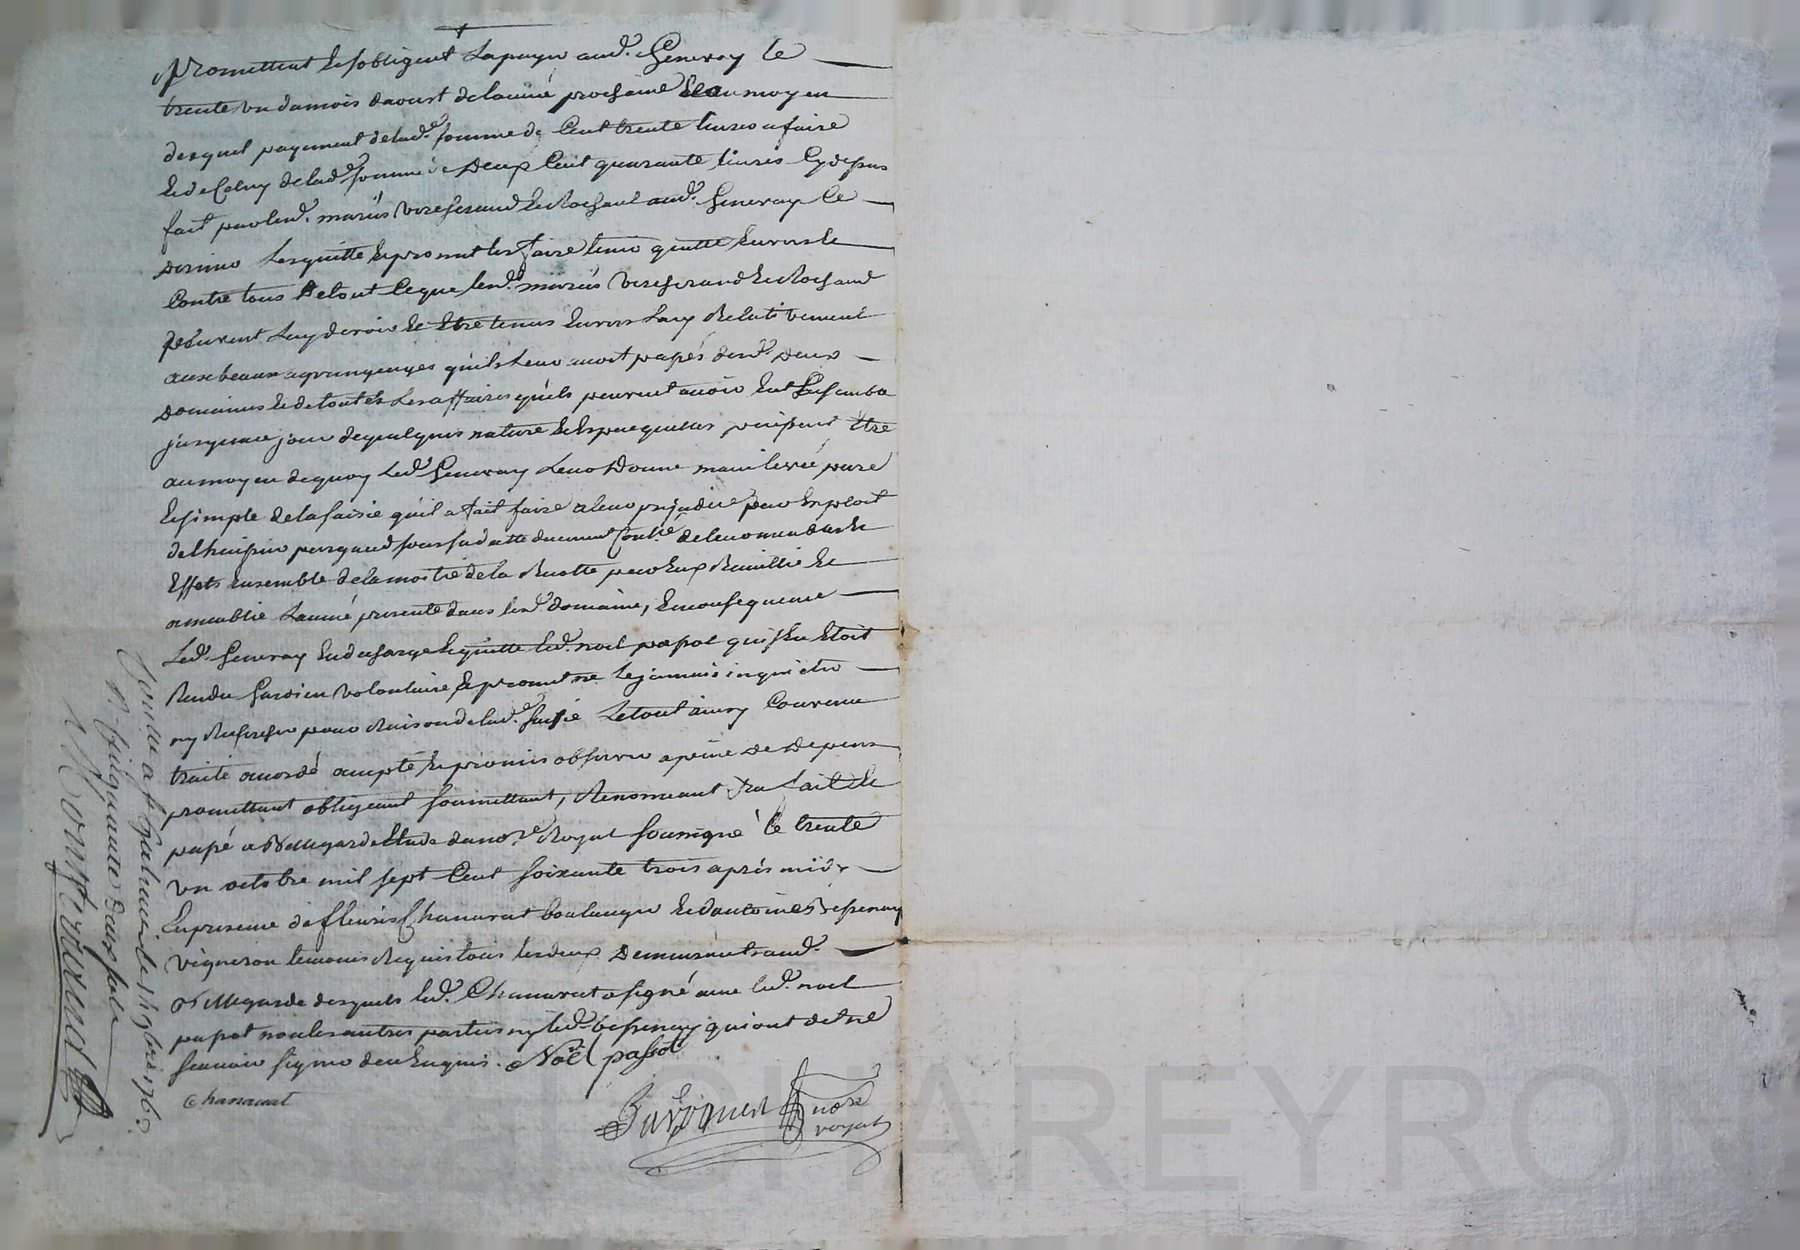 promettent et s'obligent la payer aud. Generay le
trente un du mois d'aoust de l'année prochaine et au moyen
duquel payement de lad.e somme de Cent trente livres a faire
et de Celuy de lad.e somme de Deux Cent quarante livres Cy dessus
fait par lesd. mariés et aud. Generay Ce
dernier les quitte et promet les faire tenir quitte envers et
Contre tous de tout Ce que lesd. mariés
peuvent luy devoir et être tenus envers luy Relativement
aux beaux a grangeages qu'il leur avoit passés desd. deux
Domaines et de toutes les affaires qu'ils peuvent avoir eut Ensemble
jusqu'a ce jour de quelques nature et Especes quelles puissent être
au moyen de quoy led. Generay leur Donne main levée pure
et simple de la saisie qu'il a fait faire a leur prejudice par Exploit
de l'huissier sous sa datte duement Contr.é de leurs meubles et
Effets Ensemble de la moitié de la Recolte par Eux Reuillie et
ameublie l'année presente dans lesd. domaine, En consequence
led. Generay En decharge et quitte led. noel passot qui s'en Etoit
Rendu Gardien volontaire et promet ne le jamais inquieter
ny Rechercher pour Raison de lad.e saisie le tout ainsy Convenu
traité accordé accepté et promis observer a peine de Depens
promettant obligeant soumettant, Renonceant &a fait et
passé a Bellegarde Etude du no.re Royal soussigné le trente
un octobre mil sept Cent soixante trois après midy
En presence de fleuris Chanavat boulanger et d'antoine Bessenay
vigneron temoins Requis tous les deux Demeurant aud.
Bellegarde desquels led. Chanavat a signé avec led. noel
passot non les autres parties ny led. bessenay qui ont dit ne
scavoir signer de ce Enquis. Noël passot
Chanavat
no.re
royal
Contllé a St Galmier le 9bre 1763
R. Cinquante deux sols
CHAREYRON